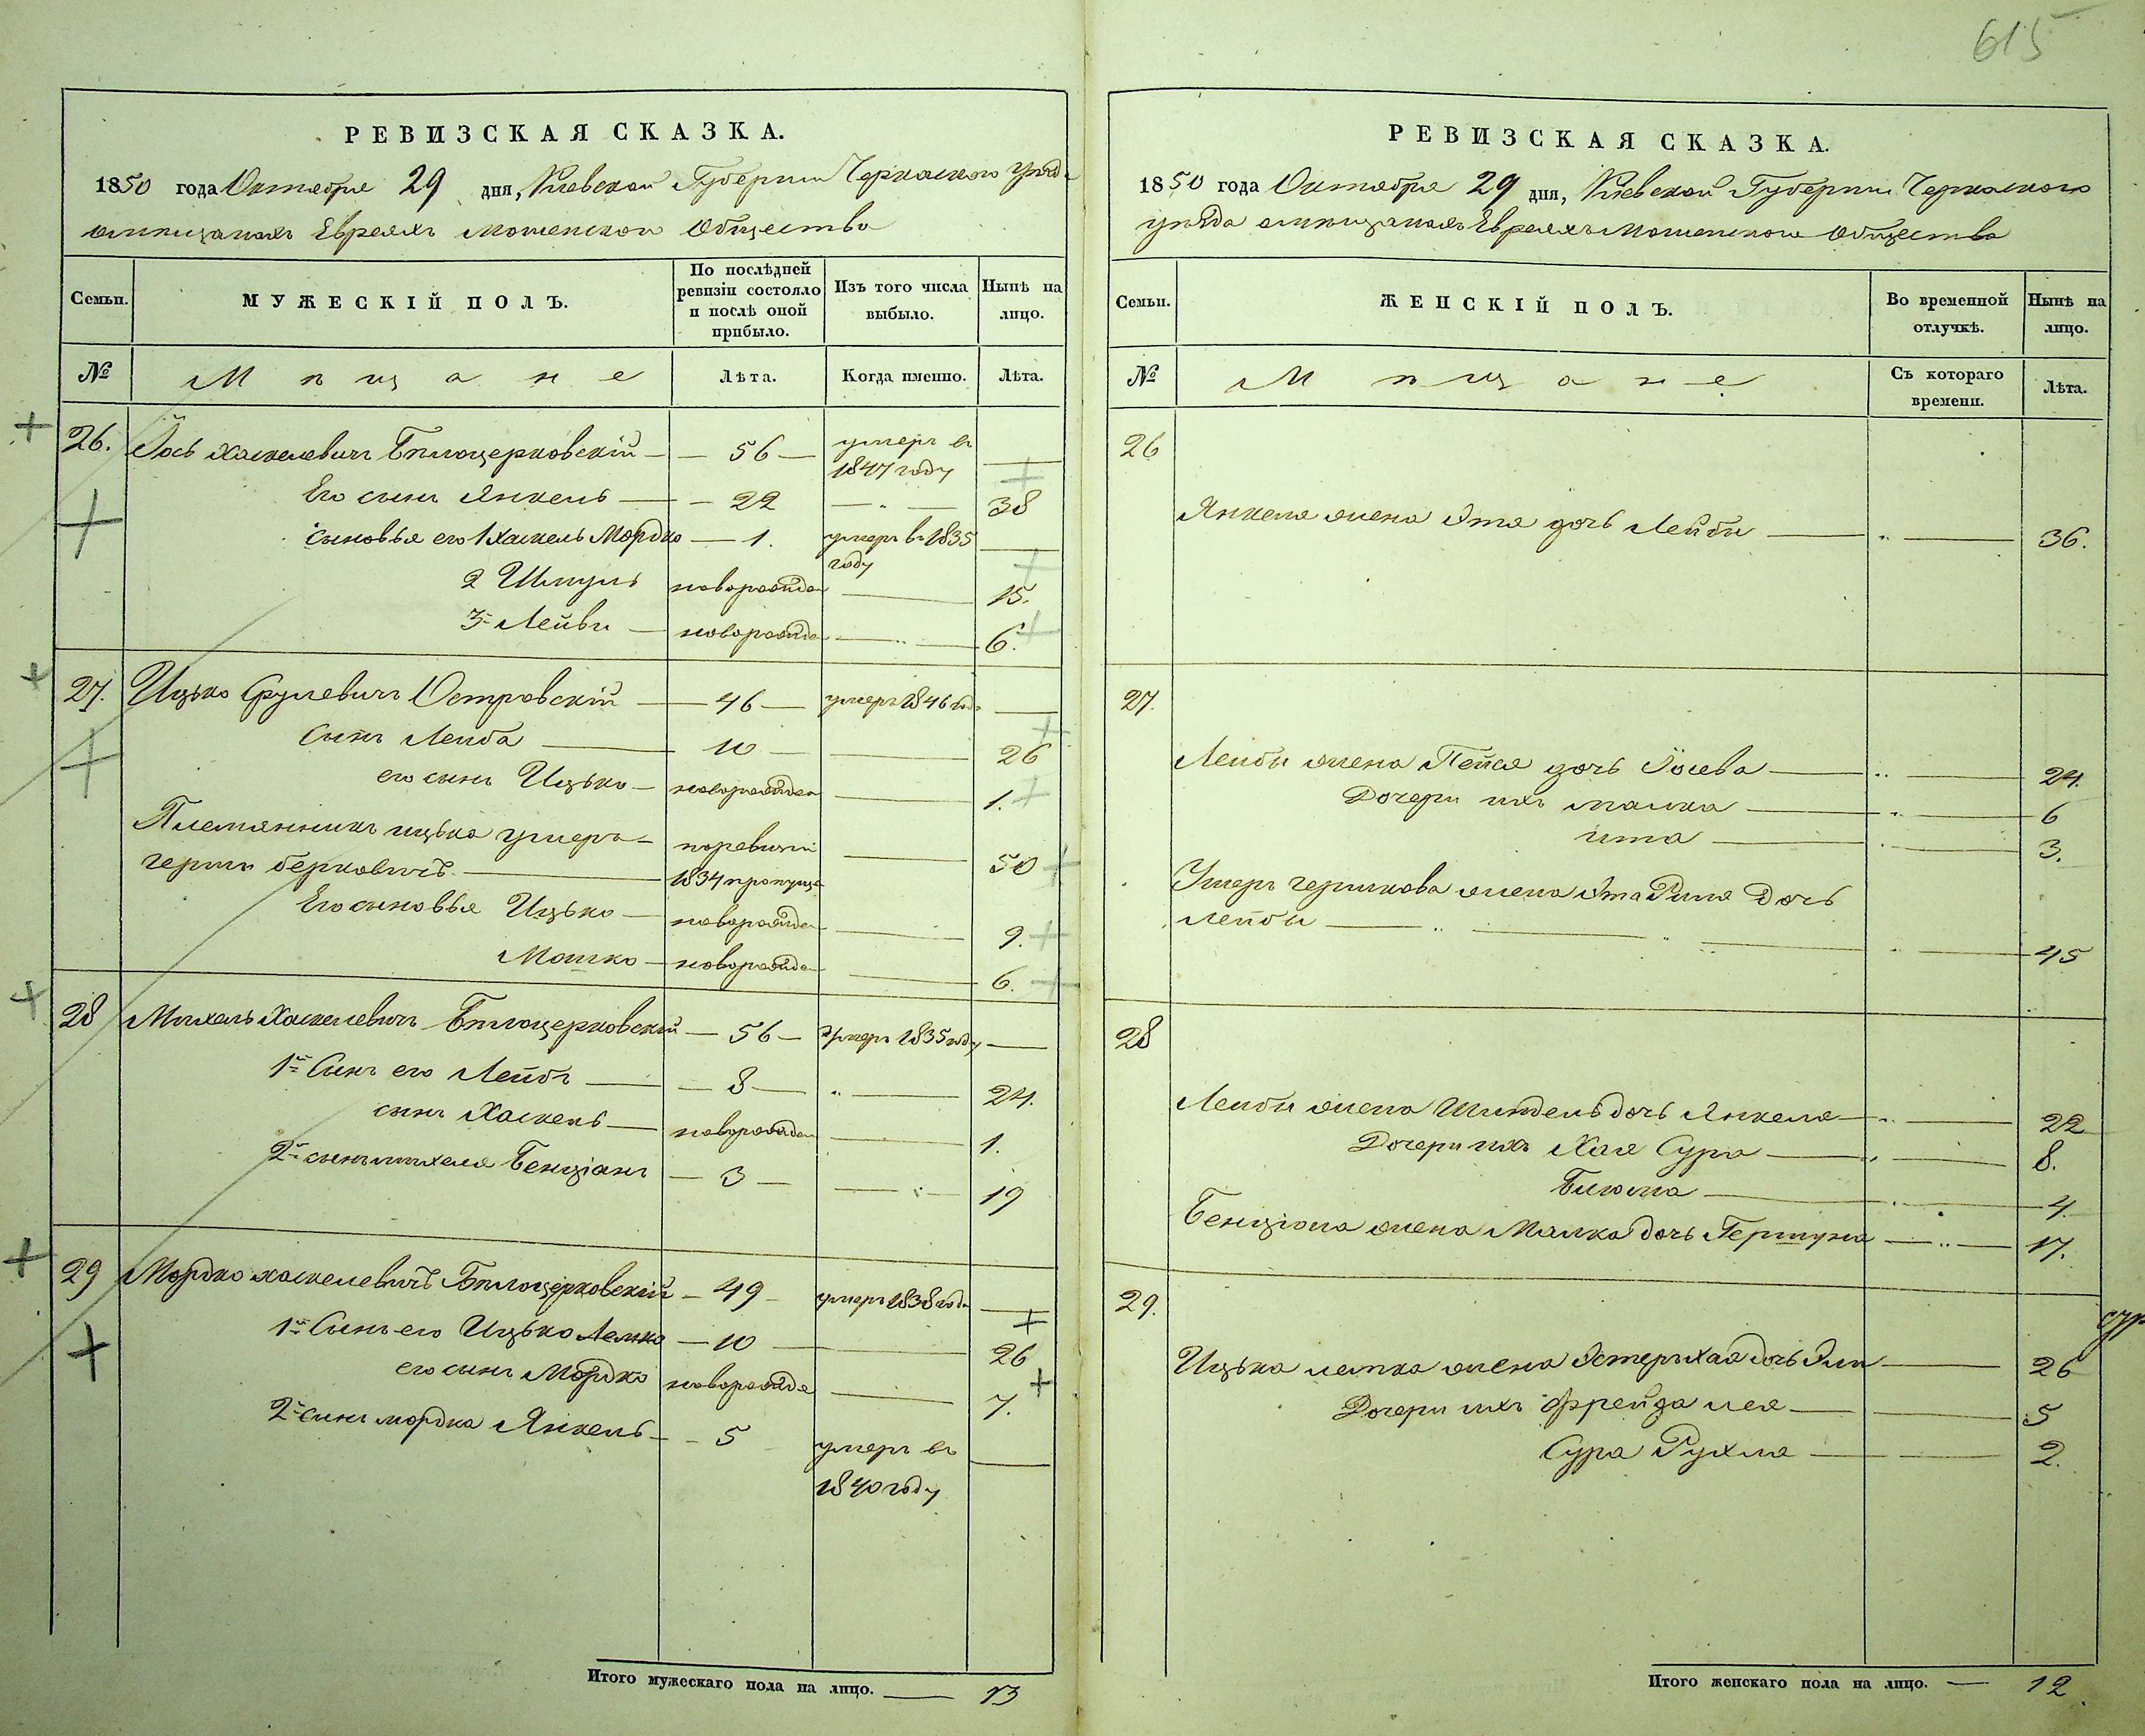 615
РЕВИЗСКАЯ СКАЗКА.
1850 года Октября 29 дня, Киевской Губернии Черкаского уѣзда
омѣщанахъ Евреяхъ мошенского Общества
Семьи.
МУЖЕСКІЙ ПОЛЪ.
По послѣдней ревизіи состояло и послѣ оной прибыло.
Изъ того числа выбыло.
Нынѣ на лицо.
№
Мѣщане
Лѣта.
Когда именно.
Лѣта.
26. Іось Хаскелевичъ Бѣлоцерковскій — 56 — умеръ въ 1847 году —
Его сынъ Янкель — 22 — 38
сыновья его 1 Хаскель Мордко — 1. умеръ в 1835 году —
2 Шмуль новорожден — 15.
3й Лейби — новорожде — 6.
27. Ицько Срулевичъ Островскій — 46 — умеръ 1846 год —
Сынъ Лейба — 10 — 26
его сынъ Ицько — новорожден — 1.
Племянникъ ицька умеръ —
гершы берковичъ. — поревизіи 1834 пропуще — 50
Его сыновья Ицько — новорожде — 9.
Мошко — новорожде — 6.
28 Михель Хаскелевичъ Бѣлоцерковскій — 56 — Умеръ 1835 году —
1й Сынъ его Лейбъ — 8 — 24.
сынъ Хаскель — новорожден — 1.
2й сынъ михеля Бенціанъ — 3 — 19
29 Мордко хаскелевичъ Бѣлоцерковскій — 49 — умеръ 1838 года —
1й Сынъ его Ицько Лемко — 10 — 26
его сынъ Мордко новорожде — 7.
2й сынъ мордка Янкель — 5 умеръ въ 1840 году —
Итого мужескаго пола на лицо. — 13
РЕВИЗСКАЯ СКАЗКА.
1850 года Октября 29 дня, Киевской Губернии Черкаского
уѣзда омѣщанахъ Евреяхъ Мошенского Общества
Семьи.
ЖЕНСКІЙ ПОЛЪ.
Во временной отлучкѣ.
Нынѣ на лицо.
№
Мѣщане
Съ котораго времени.
Лѣта.
26
Янкеля жена Эта дочь Лейбы — 36.
27.
Лейбы жена Пейся дочь Іосева — 24.
Дочери ихъ малка — 6
ита — 3.
Умеръ гершкова жена Эта Рипа Дочь
лейбы — 45
28
Лейбы жена Шиндель дочь Янкеля — 22
Дочери ихъ Хая Сура — 8.
Блюма — 4.
Бенціона жена Малка дочь Гершуна — 17.
29.
сур
Ицька лемка жена Эстеръ хая дочь Эли — 26
Дочери ихъ Фрейда лея — 5
Сура Рухля — 2.
Итого женскаго пола на лицо. — 12.